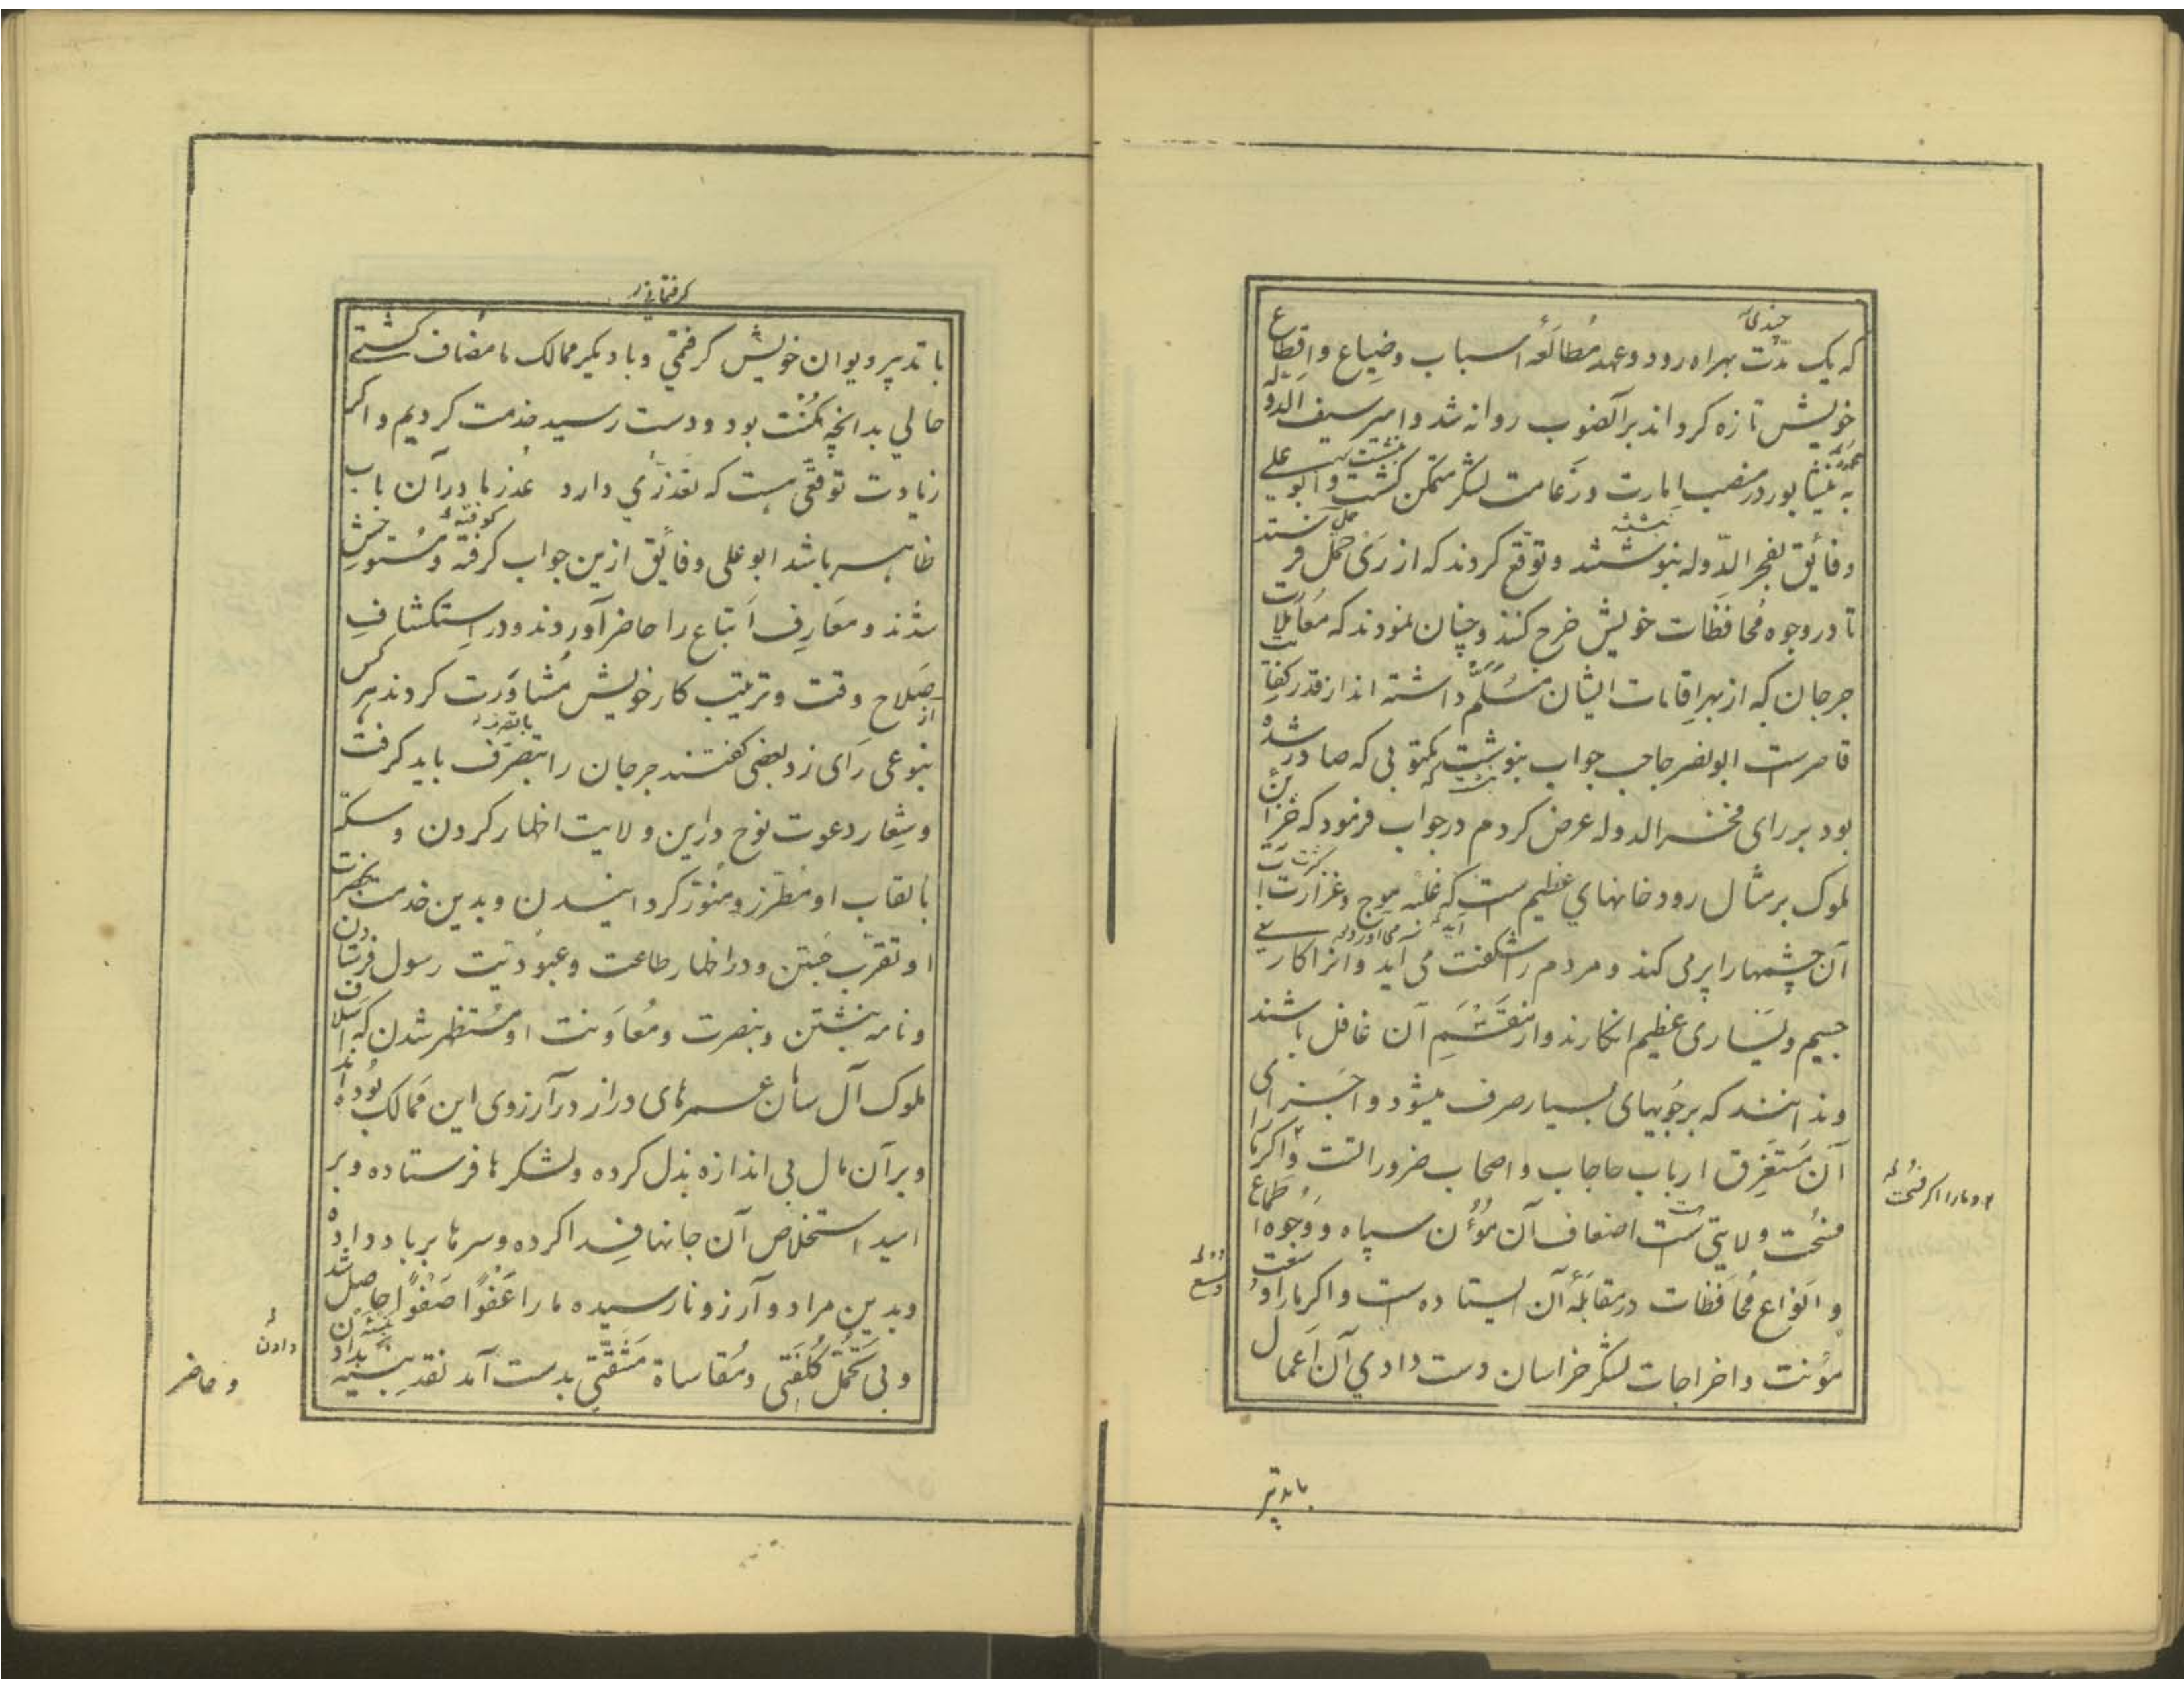 چندی
که یک مدّت بهراه رود و عهد مُطالَعهٔ اسباب و ضِیاع و اقطاع
خویش تازه کرد اند برآنصوب روانه شد و امیر سیف الدوله
به نیشابور در منصب اِمارت و زَعامت لشکر متمکن کشت و ابو علی
و فایٔق بفخر الدّوله بنوشتند و توّقع کردند که از رَی حَمْل فرستند
تا در وجوه مُحافَظات خویش خرج کنند و چنان نمودند که مُعامَلات
جرجان که از بهر اِقامات ایشان مُسَلَّم داشته اند از قدر کفایت
قاصرست ابو نصر حاجب جواب بنوشت مکتوبی که صادر شده
بود بر رای فخر الدوله عرض کردم در جواب فرمود که خزائن
ملوک بر مثال رودخانهای عظیم است که غلبه موج و غزارت آب
آن چشمها را پر می کند و مردم را شکفت می آید و انرا کاری
جسیم و یَساری عظیم انکارند و از مَقْسَمِ آن غافل باشند
و ندانند که بر جُویهای بسیار صرف میشود و اجزای
آن مُستَغرِق ارباب حاجات و اصحاب ضرورات است و اکر ما را
فسُحَت ولایتی ست اضعاف آن مُؤَن سپاه و وُجوه اطماع
و انَواع مُحافَظات در مقابَلهٔ آن ایستاده است و اکر ما را و
مؤنت و اخراجات لشکر خراسان دست دادی آن اَعمال
۲ و ما را اکر فسحت
وسع
با تدبیر
کرفتمانی
با تدبیر دیوان خویش کرفتمی و با دیکر ممالک ما مضاف کشتی
حالی بدانچه مُکنت بود و دست رسید خدمت کردیم و اکر
زیادت توقعّی هست که تعذرّی دارد عُذر ما در آن باب
ظاهر باشد ابو علی و فایٔق ازین جواب کرفته و مُستَوحِش
شدند و مَعارِف اَتباع را حاضر آوردند و در اِستکشافِ
صَلاح وقت و ترتیب کار خویش مُشاوَرت کردند هر کس از
بنوعی رَای زد بعضی کفتند جرجان را بتصرّف باید کرفت
و شِعار دعوت نوح در این ولایت اظهار کردن و سکّه
بالقاب او مُطرّز و مُنوّر کردانیدن و بدین خدمت بحضرت
او تقرّب جُستن و در اظهار طاعت و عبُودیّت رسول فرستادن
و نامه نبشتن و بنصرت و مُعاوَنت او مُستظهر شدن که اسلاف
ملوک آل سامان عمرهای دراز در آرزوی این مَمالک بُوده اند
و بر آن مال بی اندازه بذل کرده و لشکرها فرستاده و بر
امید استخلاص آن جانها فِدا کرده و سرها بر باد داده
و بدین مراد و آرزو نارسیده ما را عَفوًا صَفوًا حاصل شد
و بی تحَمُّل کُلفَتی و مُقاساة مَشَقّتی بدست آمد نقد بنسیه
دادن
و حاضر